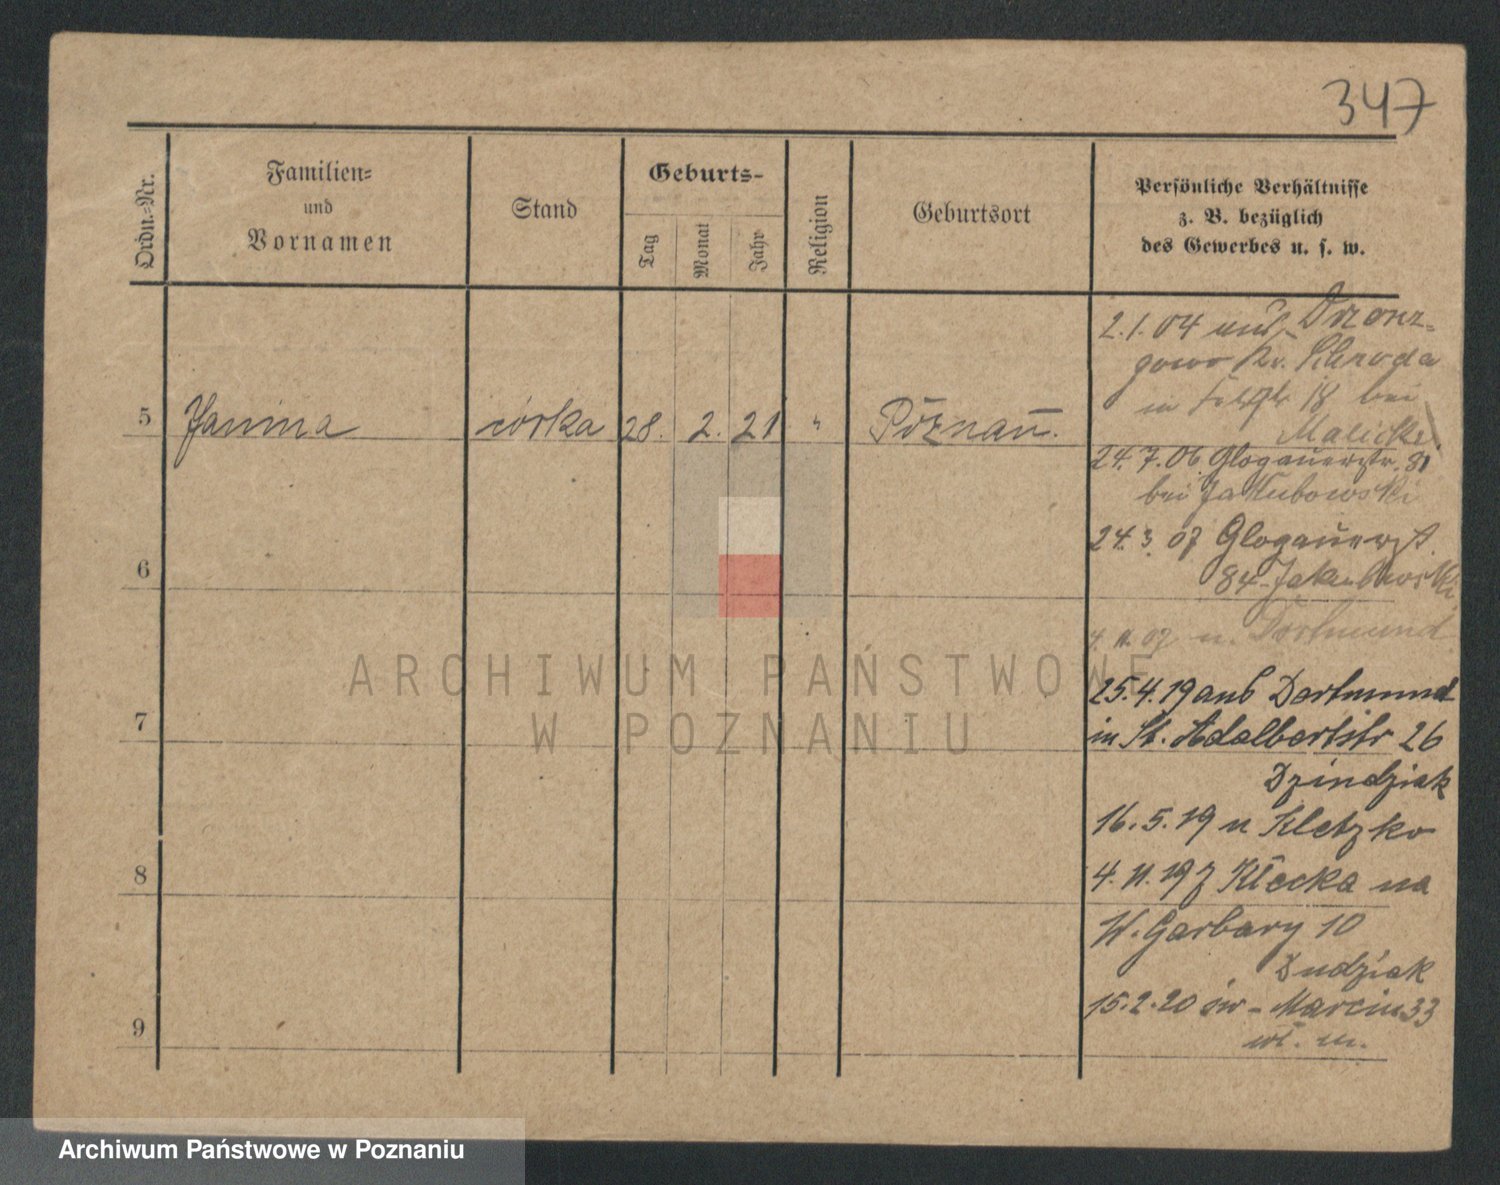 347
Ordn.-Nr.
Familien-
und
Vornamen
Stand
Geburts-
Tag
Monat
Jahr
Religion
Geburtsort
Persönliche Verhältnisse
z. B. bezüglich
des Gewerbes u. s. w.
5
Janina
córka
28.
2.
21
"
Poznań.
6
7
8
9
2.1.04 aus
gowo Kr. Schroda
in 18 bei
Malicki
24.7.06. Glogauerstr. 81
bei Jakubowski
24.3.07 Glogauerst.
84 Jakubowski
4.11.07 n. Dortmund
25.4.19 aus Dortmund
in St. Adalbertstr 26
Dzindziak
16.5.19 n Kletzko
4.11.19 z Kłecka na
W. Garbary 10
Dudziak
15.2.20 św-Marcin 33
wł. m.
ARCHIWUM PAŃSTWOWE
W POZNANIU
Archiwum Państwowe w Poznaniu